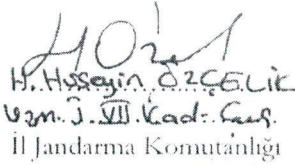 H. Hüseyin ÖZÇELİK
Uzm. J. VII. Kad. Çvş.
İl Jandarma Komutanlığı